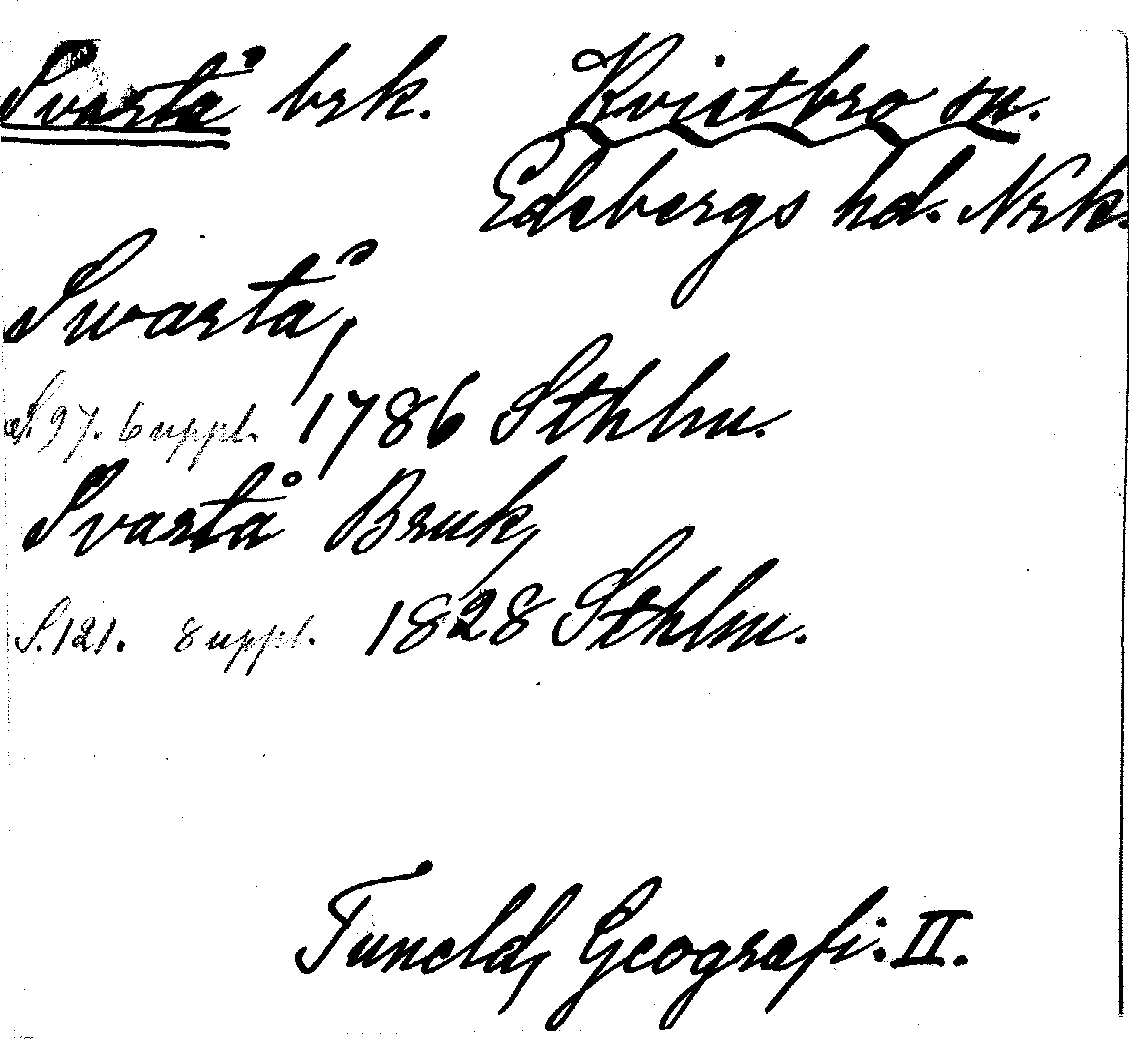 Svartå brk. Kvistbro sn.
Edsbergs hd. Nrk.
Swartå,
S. 97. 6 uppl. 1786 Sthlm.
Svartå Bruk,
S. 121. 8 uppl. 1828 Sthlm.
Tuneld, Geografi. II.